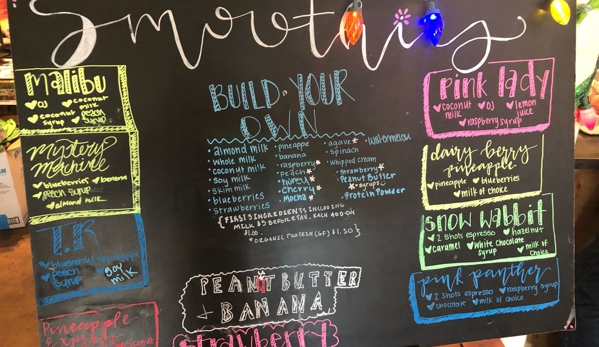 Smoothies
MALIBU
OJ coconut milk
coconut syrup peach syrup
Mystery Machine
blueberries banana
peach syrup
almond milk
T.R
blueberries
peach syrup
SOY milk
Pineapple
Express
coconut
BUILD YOUR
OWN
almond milk
whole milk
coconut milk
soy milk
skim milk
blueberries
strawberries
pineapple
banana
raspberry
Peach
cherry
Mocha
agave
spinach
whipped cream
strawberry
Peanut Butter
syrups
Protein Powder
watermelon
{FIRST 3 INGREDIENTS INCLUDING
MILK $5 BEFORE TAX, EACH ADD-ON
$1.00
ORGANIC PROTEIN (GF) $1.50}
PEANUT BUTTER
+ BANANA
Strawberry
pink lady
coconut milk OJ lemon juice
raspberry syrup
dairy berry
pineapple
pineapple blueberries
milk of choice
SNOW Wabbit
2 shots espresso hazelnut
caramel white chocolate syrup milk of choice
pink panther
2 shots espresso raspberry syrup
chocolate milk of choice